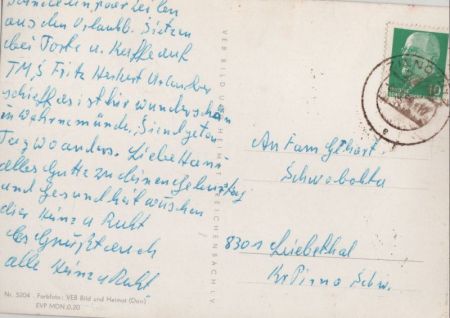 ein paar Zeilen
aus dem Urlaub. Sitzen
bei Torte u. Kaffee auf
TMS Fritz Heckert Urlauber
schiff es ist hier wunderschön
in Warnemünde. Sind jeden
Tag woanders. Liebe Hanni
alles Gute zu deinen Geburtstag
und Gesundheit wüschen
dier Heinz u Ruht
Es Grüßt euch
alle Heinz u Ruht
Nr. 5204 Farbfoto: VEB Bild und Heimat (Dau)
EVP MDN 0,20
VEB BILD UND HEIMAT REICHENBACH I. V.
10
An Fam
8301 Liebethal
Kr Pirna